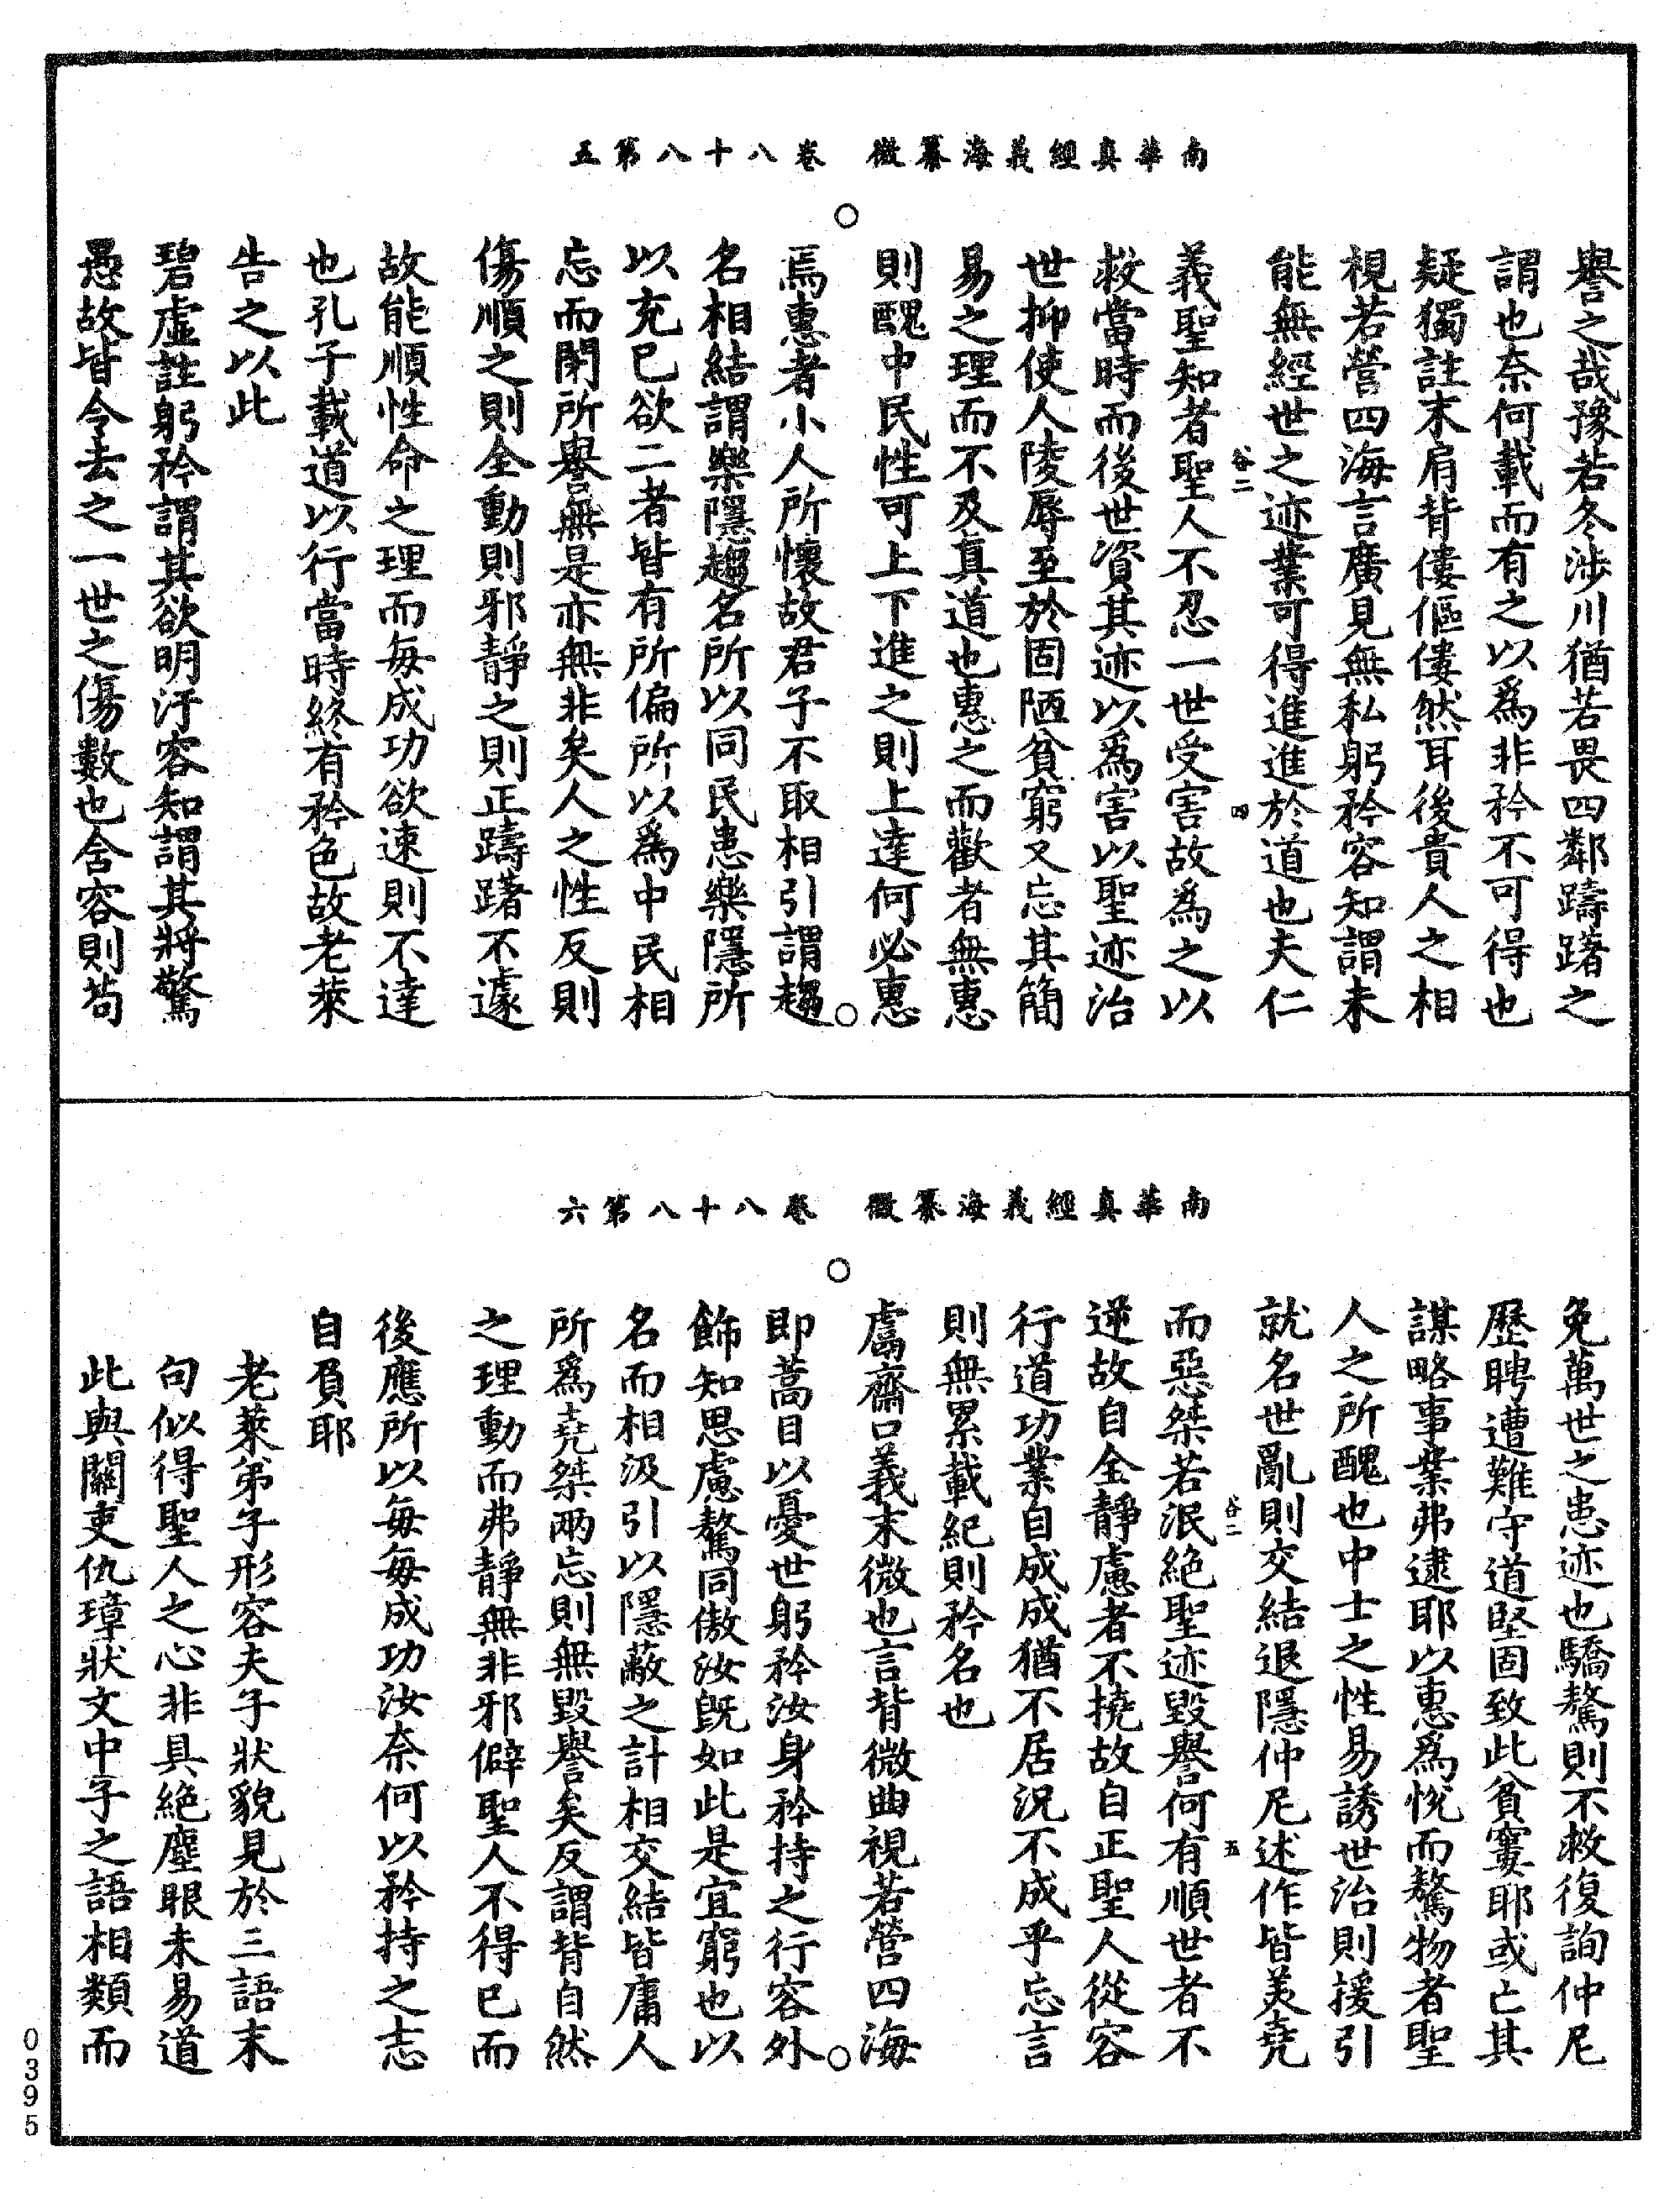 南華真經義海纂微　卷八十八第五
譽之哉豫若冬涉川猶若畏四鄰躊躇之
謂也奈何載而有之以爲非矜不可得也
疑獨註末肩背僂傴僂然耳後貴人之相
視若營四海言廣見無私躬矜容知謂未
能無經世之迹業可得進進於道也夫仁
谷二
四
義聖知者聖人不忍一世受害故爲之以
救當時而後世資其迹以爲害以聖迹治
世抑使人陵辱至於固陋貧窮又忘其簡
易之理而不及真道也惠之而歡者無惠
則醜中民性可上下進之則上達何必惠
焉惠者小人所懷故君子不取相引謂趨
名相結謂樂隱趨名所以同民患樂隱所
以充己欲二者皆有所偏所以爲中民相
忘而閉所譽無是亦無非矣人之性反則
傷順之則全動則邪靜之則正躊躇不遽
故能順性命之理而每成功欲速則不達
也孔子載道以行當時終有矜色故老萊
告之以此
碧虛註躬矜謂其欲明汙容知謂其將驚
愚故皆令去之一世之傷數也含容則苟
南華真經義海纂微　卷八十八第六
免萬世之患迹也驕驁則不救復詢仲尼
歷聘遭難守道堅固致此貧窶耶或亡其
謀略事業弗逮耶以惠爲悅而驁物者聖
人之所醜也中士之性易誘世治則援引
就名世亂則交結退隱仲尼述作皆美堯
谷二
五
而惡桀若泯絕聖迹毀譽何有順世者不
逆故自全靜慮者不撓故自正聖人從容
行道功業自成成猶不居況不成乎忘言
則無累載紀則矜名也
鬳齋口義末微也言背微曲視若營四海
即蒿目以憂世躬矜汝身矜持之行容外
飾知思慮驁同傲汝既如此是宜窮也以
名而相汲引以隱蔽之計相交結皆庸人
所爲堯桀兩忘則無毀譽矣反謂背自然
之理動而弗靜無非邪僻聖人不得已而
後應所以每每成功汝奈何以矜持之志
自負耶
老萊弟子形容夫子狀貌見於三語末
句似得聖人之心非具絕塵眼未易道
此與關吏仇璋狀文中子之語相類而
0395